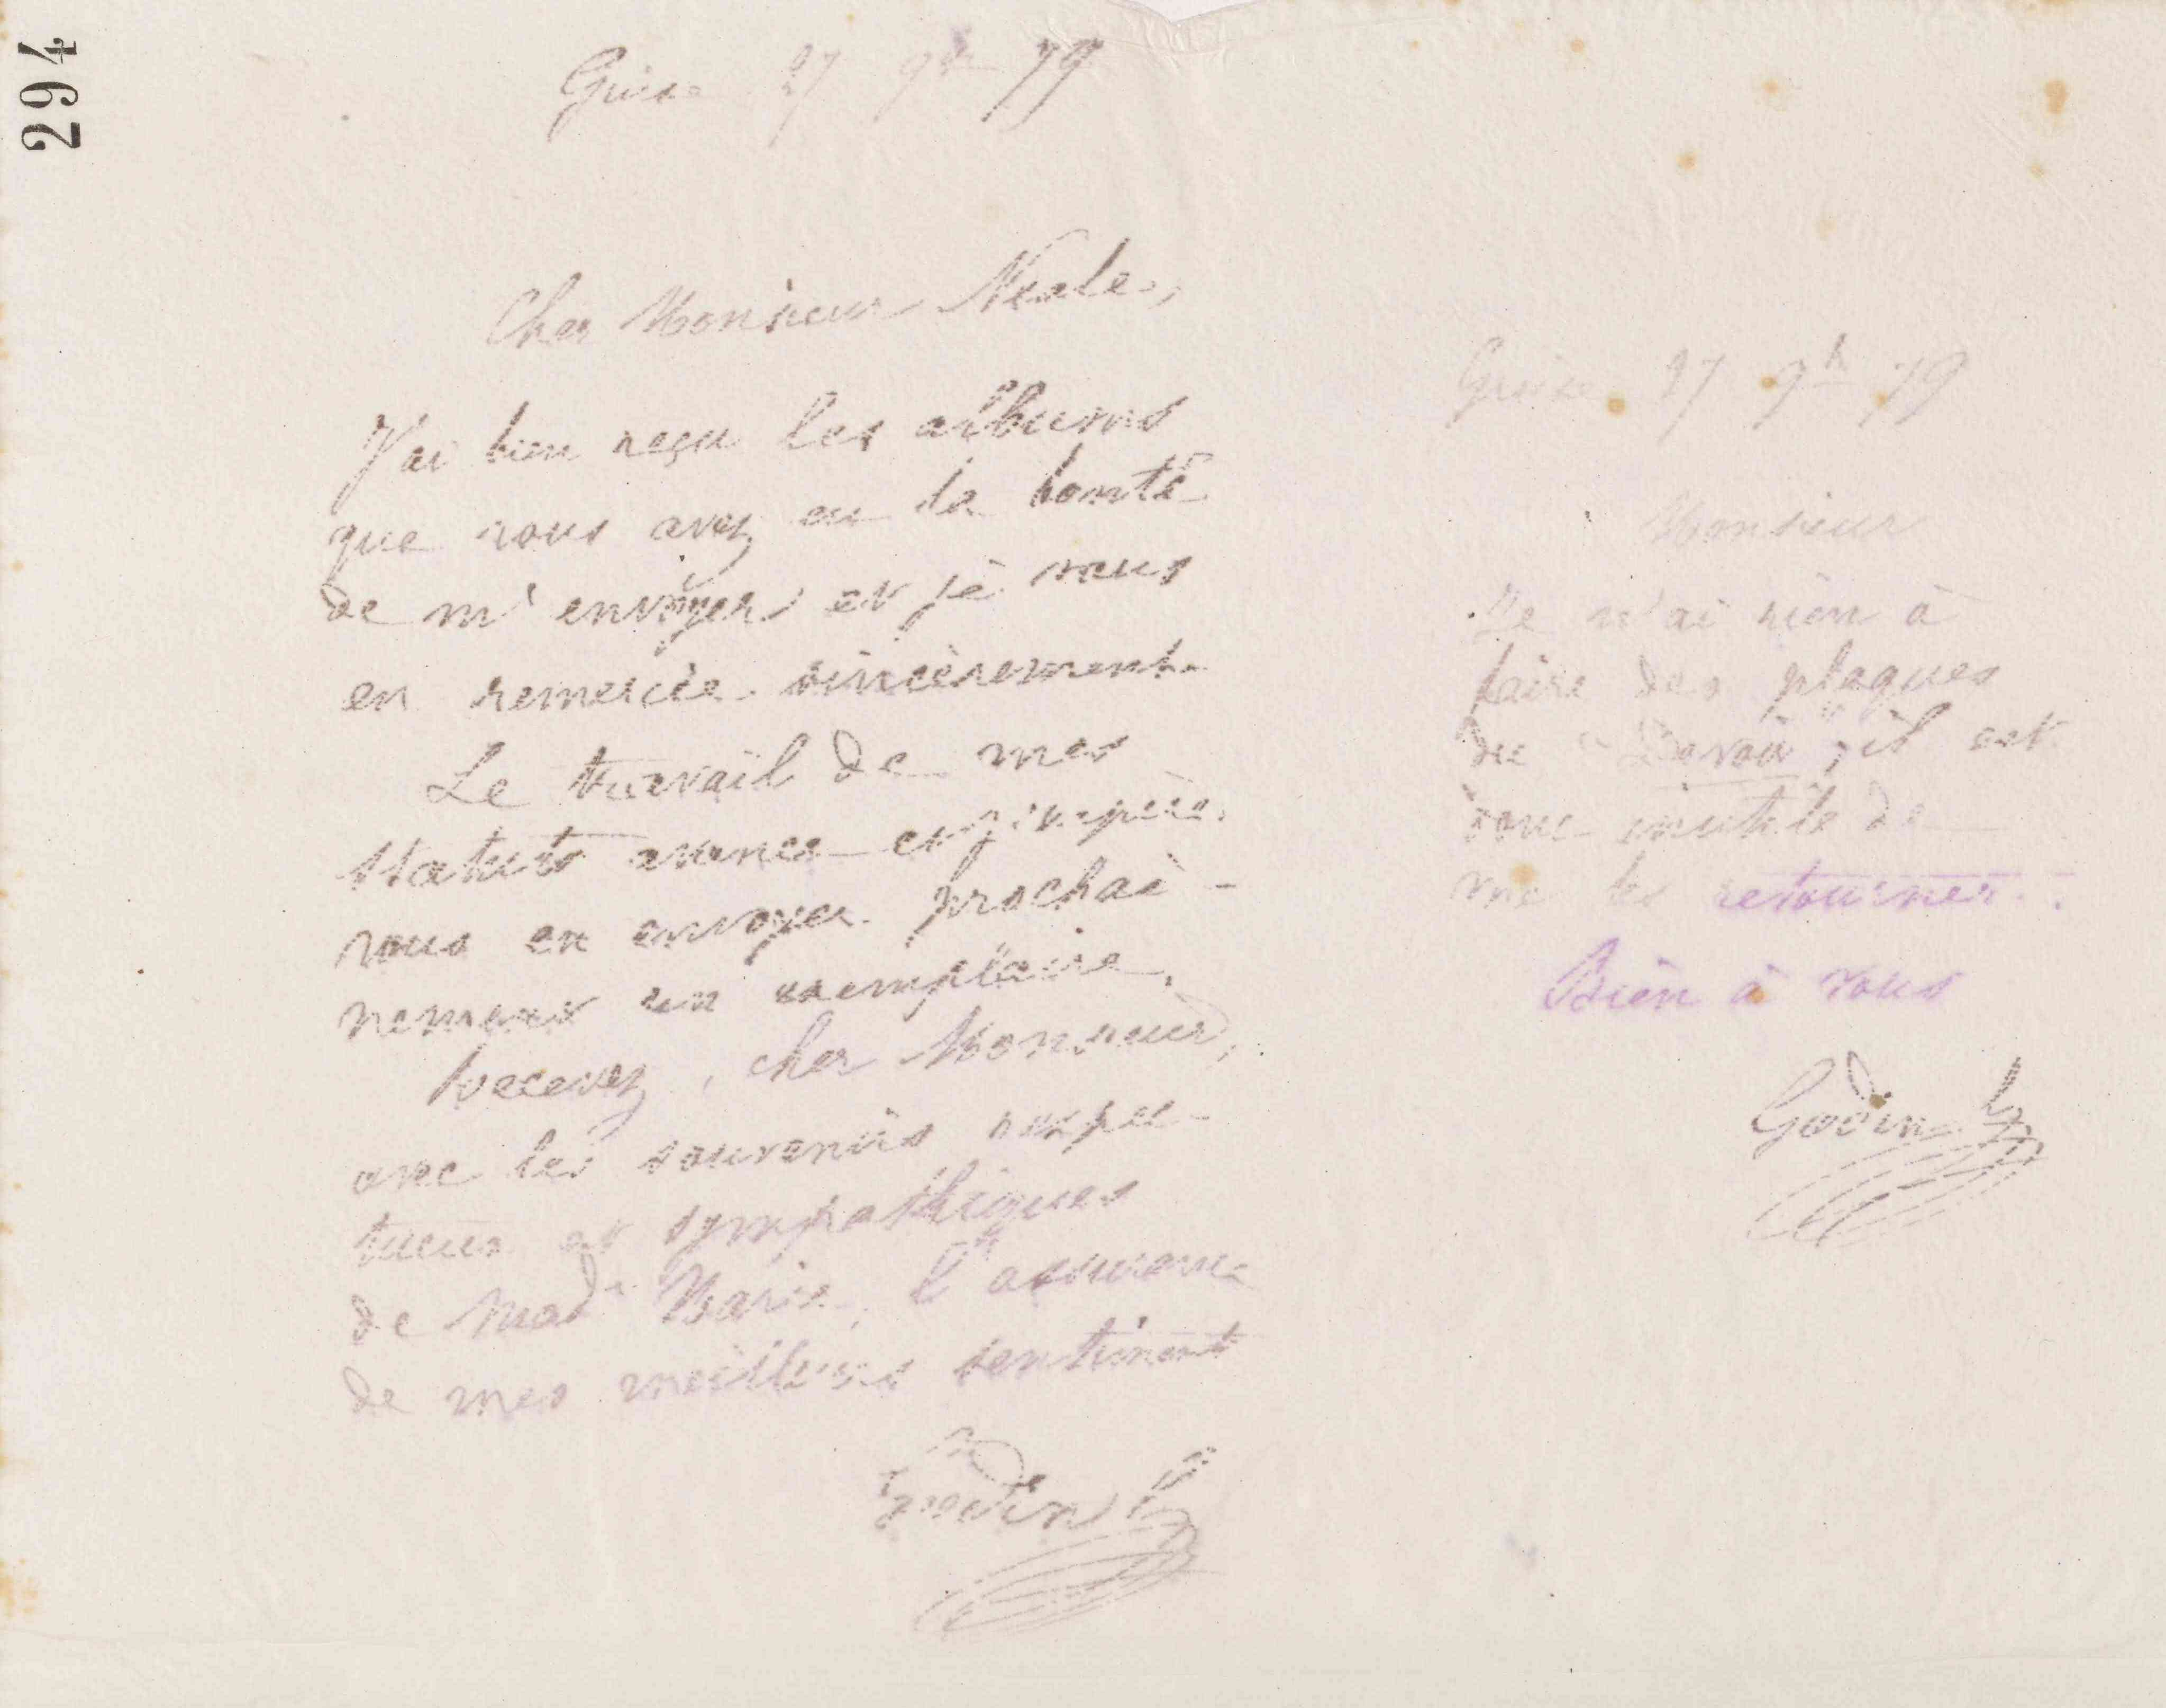 294
Guise 27 9bre 79
Cher Monsieur Neale,
J'ai bien reçu les albums
que vous avez eu la bonté
de m'envoyer et je vous
en remercie sincèrement.
Le travail de mes
statuts avance et j'espère
vous en envoyer prochai-
nement un exemplaire.
Recevez, cher Monsieur,
avec les souvenirs respec-
tueux et sympathiques
de Made Marie, l'assurance
de mes meilleurs sentiments
Godin
Guise 27 9b 79
Monsieur
Je n'ai rien à
faire des plaques
du "Devoir", il est
donc inutile de
me les retourner.
Bien à vous
Godin